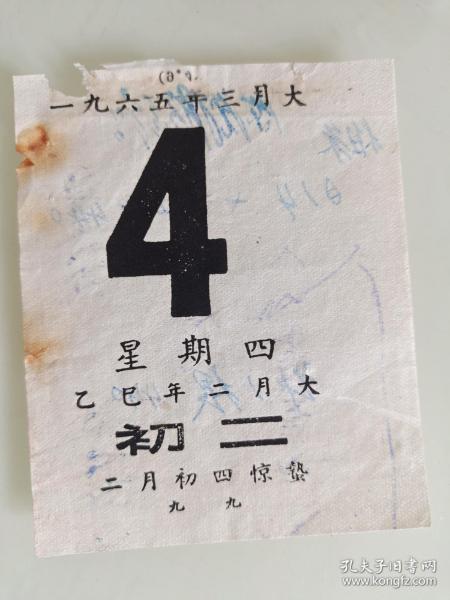 一九六五年三月大
4
星期四
乙巳年二月大
初二
二月初四惊蛰
九九
孔夫子旧书网
www.kongfz.com